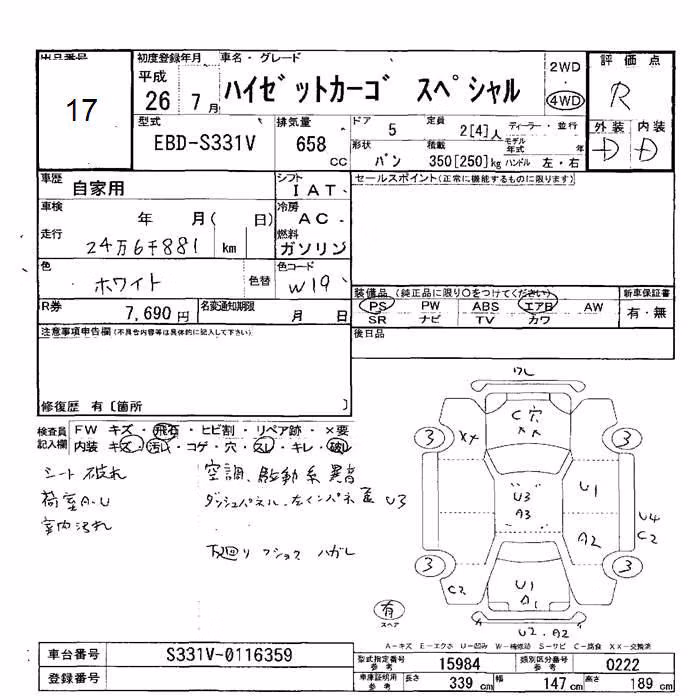 出品番号 初度登録年月 車名・グレード 評価点
17 平成 26 7月 ハイゼットカーゴ スペシャル 2WD 4WD R
型式 排気量 ドア 5 定員 2[4]人 ディーラー・並行 外装 内装
EBD-S331V 658 CC 形状 バン 積載 350[250]kg モデル年式 年 ハンドル 左・右 D D
車歴 自家用 シフト IAT セールスポイント(正常に機能するものに限ります)
車検 年 月( 日) 冷房 AC
走行 24万6千881 km 燃料 ガソリン
色 ホワイト 色替 色コード W19
装備品 (純正品に限り○をつけてください) 新車保証書
PS PW ABS エアB AW 有・無
SR ナビ TV カワ
R券 7,690円 名変通知期限 月 日
注意事項申告欄(不具合内容等は具体的に記入して下さい) 後日品
修復歴 有〔箇所 〕
検査員記入欄 FW キズ・飛石・ヒビ割・リペア跡・×要
内装 キズ・汚レ・コゲ・穴・スレ・キレ・破レ
シート破れ 空調、駆動系異音
荷室A・U ダッシュパネル、左インパネ
室内汚れ U3
下廻り フック ハガレ
ワレ
C 穴
XX
3 3
U3 A3
U1
U4
C2
A2
3 3
C2
U1
A1
U2・A2
有
スペア
A-キズ E-エクボ U-凹み W-補修跡 S-サビ C-腐食 XX-交換済
車台番号 S331V-0116359 型式指定番号 参考 15984 類別区分番号 参考 0222
登録番号 車庫証明用 参考 長さ 339 cm 幅 147 cm 高さ 189 cm